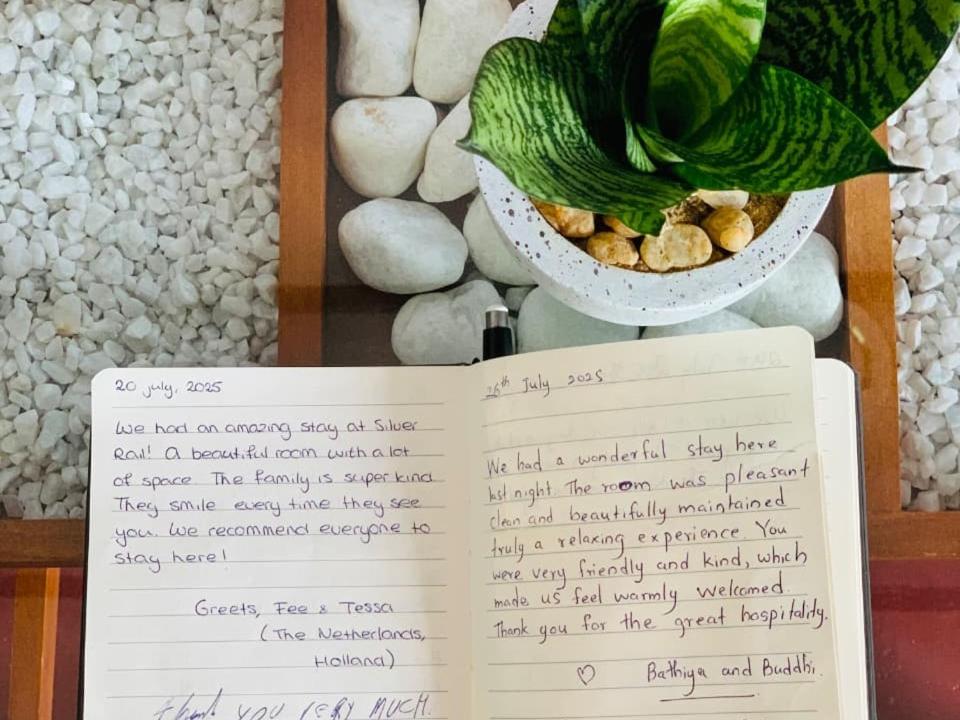 20 july, 2025
We had an amazing stay at Silver
Rail! A beautiful room with a lot
of space. The family is super kind
They smile every time they see
you. We recommend everyone to
stay here!
Greets, Fee & Tessa
(The Netherlands,
Holland)
thank YOU VERY MUCH.
26th July 2025
We had a wonderful stay here
last night. The room was pleasant
clean and beautifully maintained
truly a relaxing experience. You
were very friendly and kind, which
made us feel warmly welcomed.
Thank you for the great hospitality.
♡ Bathiya and Buddhi.